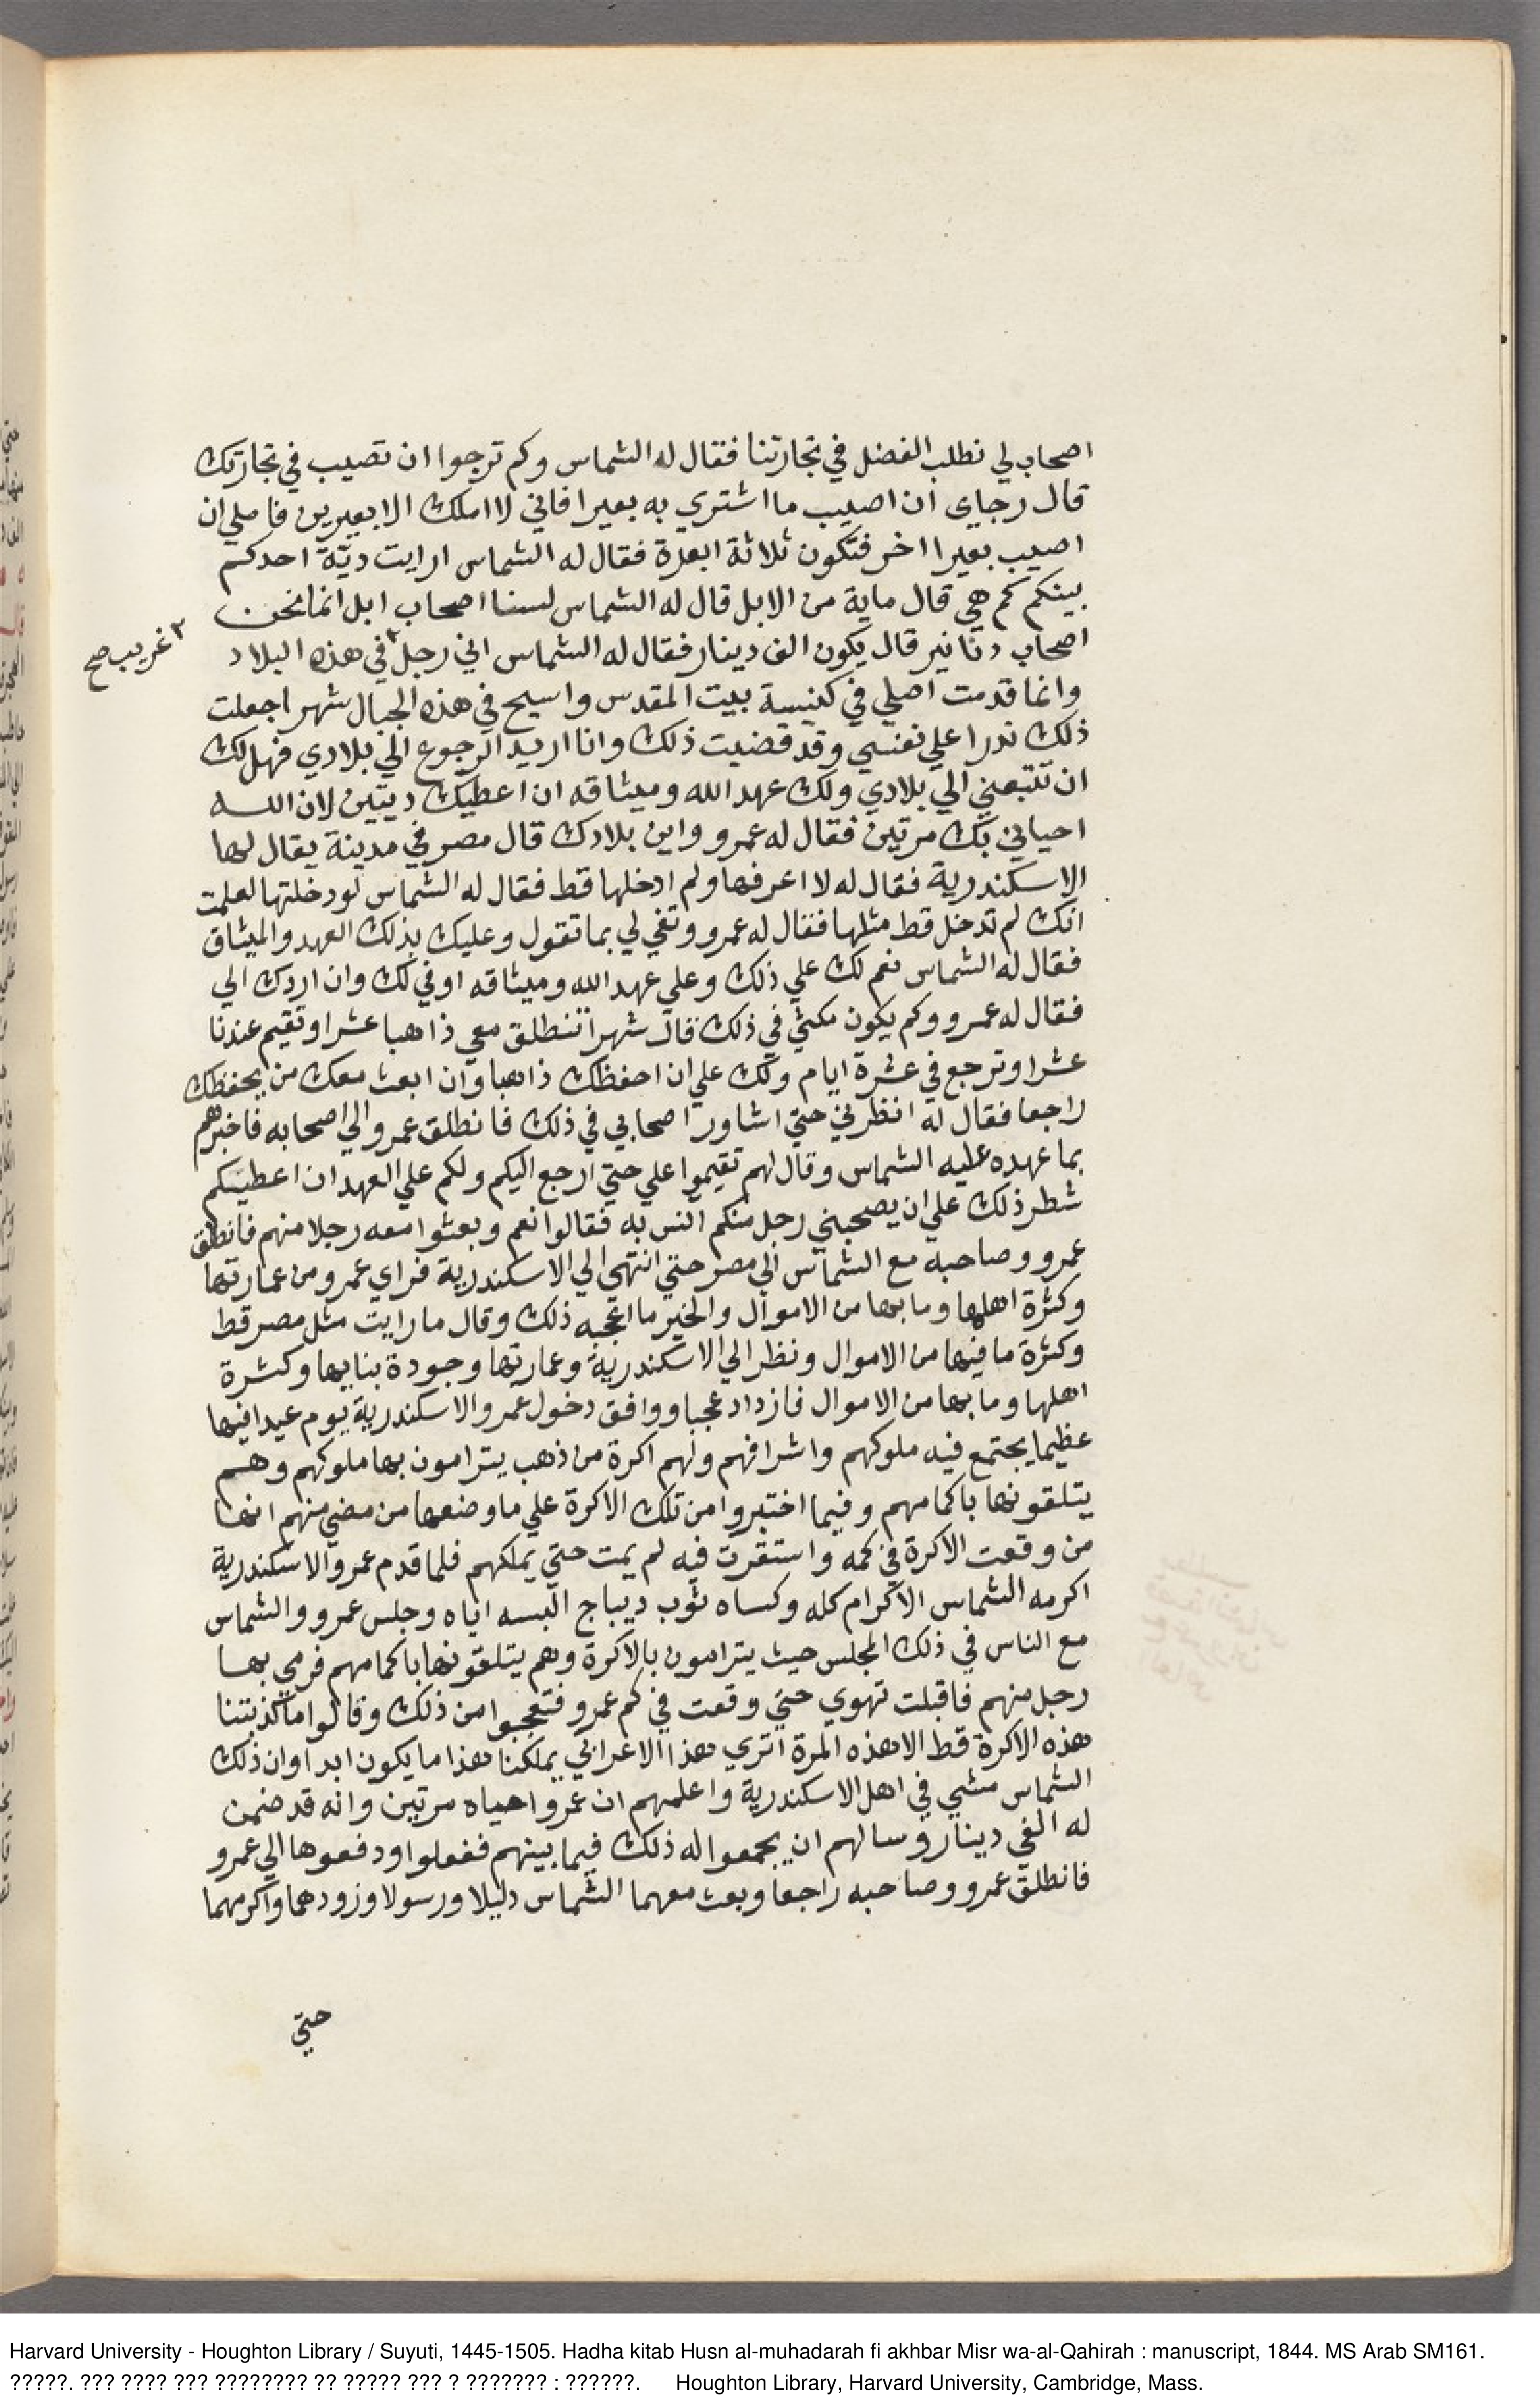 اصحاب لي نطلب الفضل في تجارتنا فقال له الشماس وكم ترجوا ان تصيب في تجارتك
قال رجاي ان اصيب ما اشتري به بعيرا فاني لا املك الا بعيرين فاملي ان
اصيب بعيرا اخر فتكون ثلاثة ابعرة فقال له الشماس ارايت دية احدكم
بينكم كم هي قال ماية من الابل قال له الشماس لسنا اصحاب ابل انما نحن
اصحاب دنانير قال يكون الف دينار فقال له الشماس اني رجل٣ في هذه البلاد
٣ غريب صح
وانما قدمت اصلي في كنيسة بيت المقدس واسيح في هذه الجبال شهر اجعلت
ذلك ندرا علي نفسي وقد قضيت ذلك وانا اريد الرجوع الي بلادي فهل لك
ان تتبعني الي بلادي ولك عهد الله وميثاقه ان اعطيك ديتين لان الله
احياني بك مرتين فقال له عمرو واين بلادك قال مصر في مدينة يقال لها
الاسكندرية فقال له لا اعرفها ولم ادخلها قط فقال له الشماس لو دخلتها لعلمت
انك لم تدخل قط مثلها فقال له عمرو وتفي لي بما تقول وعليك بذلك العهد والميثاق
فقال له الشماس نعم لك علي ذلك وعلي عهد الله وميثاقه اوفي لك وان اردك الي
فقال له عمرو وكم يكون مكثي في ذلك قال شهرا تنطلق معي ذاهبا عشرا وتقيم عندنا
عشرا وترجع في عشرة ايام ولك علي ان احفظك ذاهبا وان ابعث معك من يحفظك
راجعا فقال له انظرني حتي اشاور اصحابي في ذلك فانطلق عمرو الي اصحابه فاخبرهم
بما عهده عليه الشماس وقال لهم تقيموا علي حتي ارجع اليكم ولكم علي العهد ان اعطيكم
شطر ذلك علي ان يصحبني رجل منكم انس به فقالوا نعم وبعثوا معه رجلا منهم فانطلق
عمرو وصاحبه مع الشماس الي مصر حتي انتهي الي الاسكندرية فراي عمرو من عمارتها
وكثرة اهلها وما بها من الاموال والخير ما اعجبه ذلك وقال ما رايت مثل مصر قط
وكثرة ما فيها من الاموال ونظر الي الاسكندرية وعمارتها وجودة بنايها وكثرة
اهلها وما بها من الاموال فازداد عجبا ووافق دخول عمرو الاسكندرية يوم عيدا فيها
عظيما يجتمع فيه ملوكهم واشرافهم ولهم اكرة من ذهب يترامون بها ملوكهم وهم
يتلقونها باكمامهم وفيما اختبروا من تلك الاكرة علي ما وضعها من مضي منهم انها
من وقعت الاكرة في كمه واستقرت فيه لم يمت حتي يملكهم فلما قدم عمرو الاسكندرية
اكرمه الشماس الاكرام كله وكساه ثوب ديباج البسه اياه وجلس عمرو والشماس
مع الناس في ذلك المجلس حيث يترامون بالاكرة وهم يتلقونها باكمامهم فرمي بها
رجل منهم فاقبلت تهوي حتي وقعت في كم عمرو فتعجبوا من ذلك وقالوا ما كذبتنا
هذه الاكرة قط الا هذه المرة اتري هذا الاعرابي يملكنا هذا ما يكون ابدا وان ذلك
الشماس مشي في اهل الاسكندرية واعلمهم ان عمروا حياه مرتين وانه قد ضمن
له الفي دينار وسالهم ان يجمعوا له ذلك فيما بينهم ففعلوا ودفعوها الي عمرو
فانطلق عمرو وصاحبه راجعا وبعث معهما الشماس دليلا ورسولا وزودهما واكرمهما
حتي
Harvard University - Houghton Library / Suyuti, 1445-1505. Hadha kitab Husn al-muhadarah fi akhbar Misr wa-al-Qahirah : manuscript, 1844. MS Arab SM161.
?????. ??? ???? ??? ???????? ?? ????? ??? ? ??????? : ??????. Houghton Library, Harvard University, Cambridge, Mass.